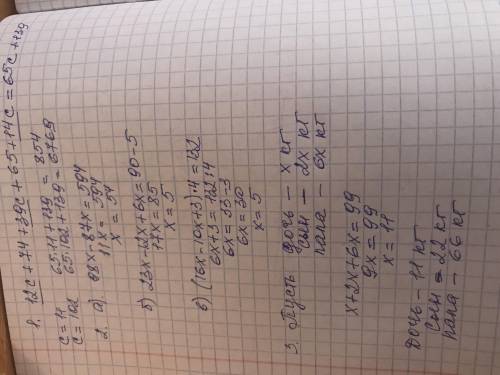 1. 12с + 74 + 39с + 65 + 14с = 65с + 139
с = 11 65·11 + 139 = 854
с = 102 65·102 + 139 = 6769
2. а) 98х - 87х = 594
11х = 594
х = 54
б) 23х - 12х + 6х = 90 - 5
17х = 85
х = 5
в) (16х - 10х + 3)·4 = 132
6х + 3 = 132 : 4
6х = 33 - 3
6х = 30
х = 5
3. Пусть дочь - х кг
сын - 2х кг
папа - 6х кг
х + 2х + 6х = 99
9х = 99
х = 11
Дочь - 11 кг
Сын = 22 кг
папа - 66 кг